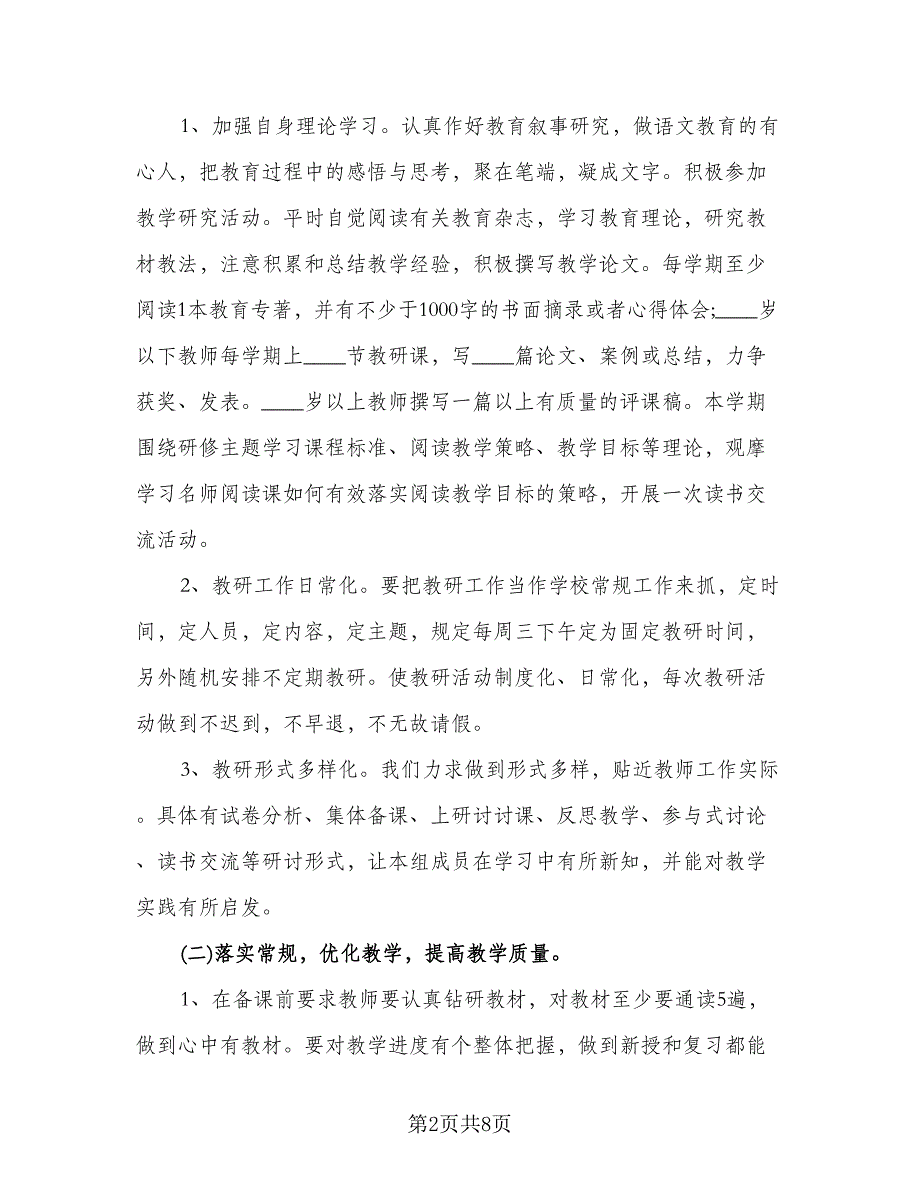 1、加强自身理论学习。认真作好教育叙事研究，做语文教育的有
心人，把教育过程中的感悟与思考，聚在笔端，凝成文字。积极参加
教学研究活动。平时自觉阅读有关教育杂志，学习教育理论，研究教
材教法，注意积累和总结教学经验，积极撰写教学论文。每学期至少
阅读1本教育专著，并有不少于1000字的书面摘录或者心得体会;____岁
以下教师每学期上____节教研课，写____篇论文、案例或总结，力争
获奖、发表。____岁以上教师撰写一篇以上有质量的评课稿。本学期
围绕研修主题学习课程标准、阅读教学策略、教学目标等理论，观摩
学习名师阅读课如何有效落实阅读教学目标的策略，开展一次读书交
流活动。
2、教研工作日常化。要把教研工作当作学校常规工作来抓，定时
间，定人员，定内容，定主题，规定每周三下午定为固定教研时间，
另外随机安排不定期教研。使教研活动制度化、日常化，每次教研活
动做到不迟到，不早退，不无故请假。
3、教研形式多样化。我们力求做到形式多样，贴近教师工作实际
。具体有试卷分析、集体备课、上研讨讨课、反思教学、参与式讨论
、读书交流等研讨形式，让本组成员在学习中有所新知，并能对教学
实践有所启发。
(二)落实常规，优化教学，提高教学质量。
1、在备课前要求教师要认真钻研教材，对教材至少要通读5遍，
做到心中有教材。要对教学进度有个整体把握，做到新授和复习都能
第2页共8页